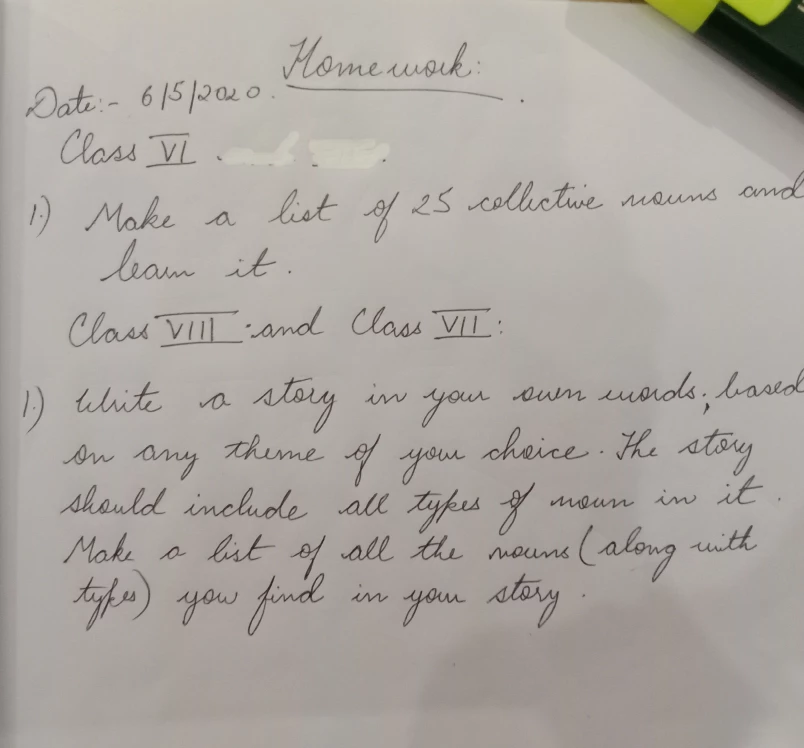 Homework:
Date:- 6/5/2020.
Class VI.
1.) Make a list of 25 collective nouns and
learn it.
Class VIII and Class VII:
1.) Write a story in your own words, based
on any theme of your choice. The story
should include all types of noun in it.
Make a list of all the nouns (along with
types) you find in your story.